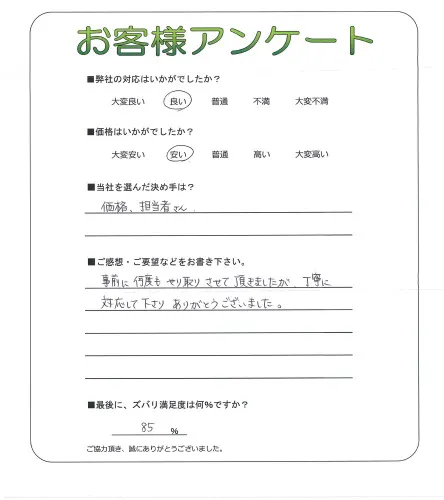 お客様アンケート
■弊社の対応はいかがでしたか?
大変良い 良い 普通 不満 大変不満
■価格はいかがでしたか?
大変安い 安い 普通 高い 大変高い
■当社を選んだ決め手は?
価格、担当者さん
■ご感想・ご要望などをお書き下さい。
事前に何度もやり取りさせて頂きましたが、丁寧に
対応して下さりありがとうございました。
■最後に、ズバリ満足度は何%ですか?
85 %
ご協力頂き、誠にありがとうございました。